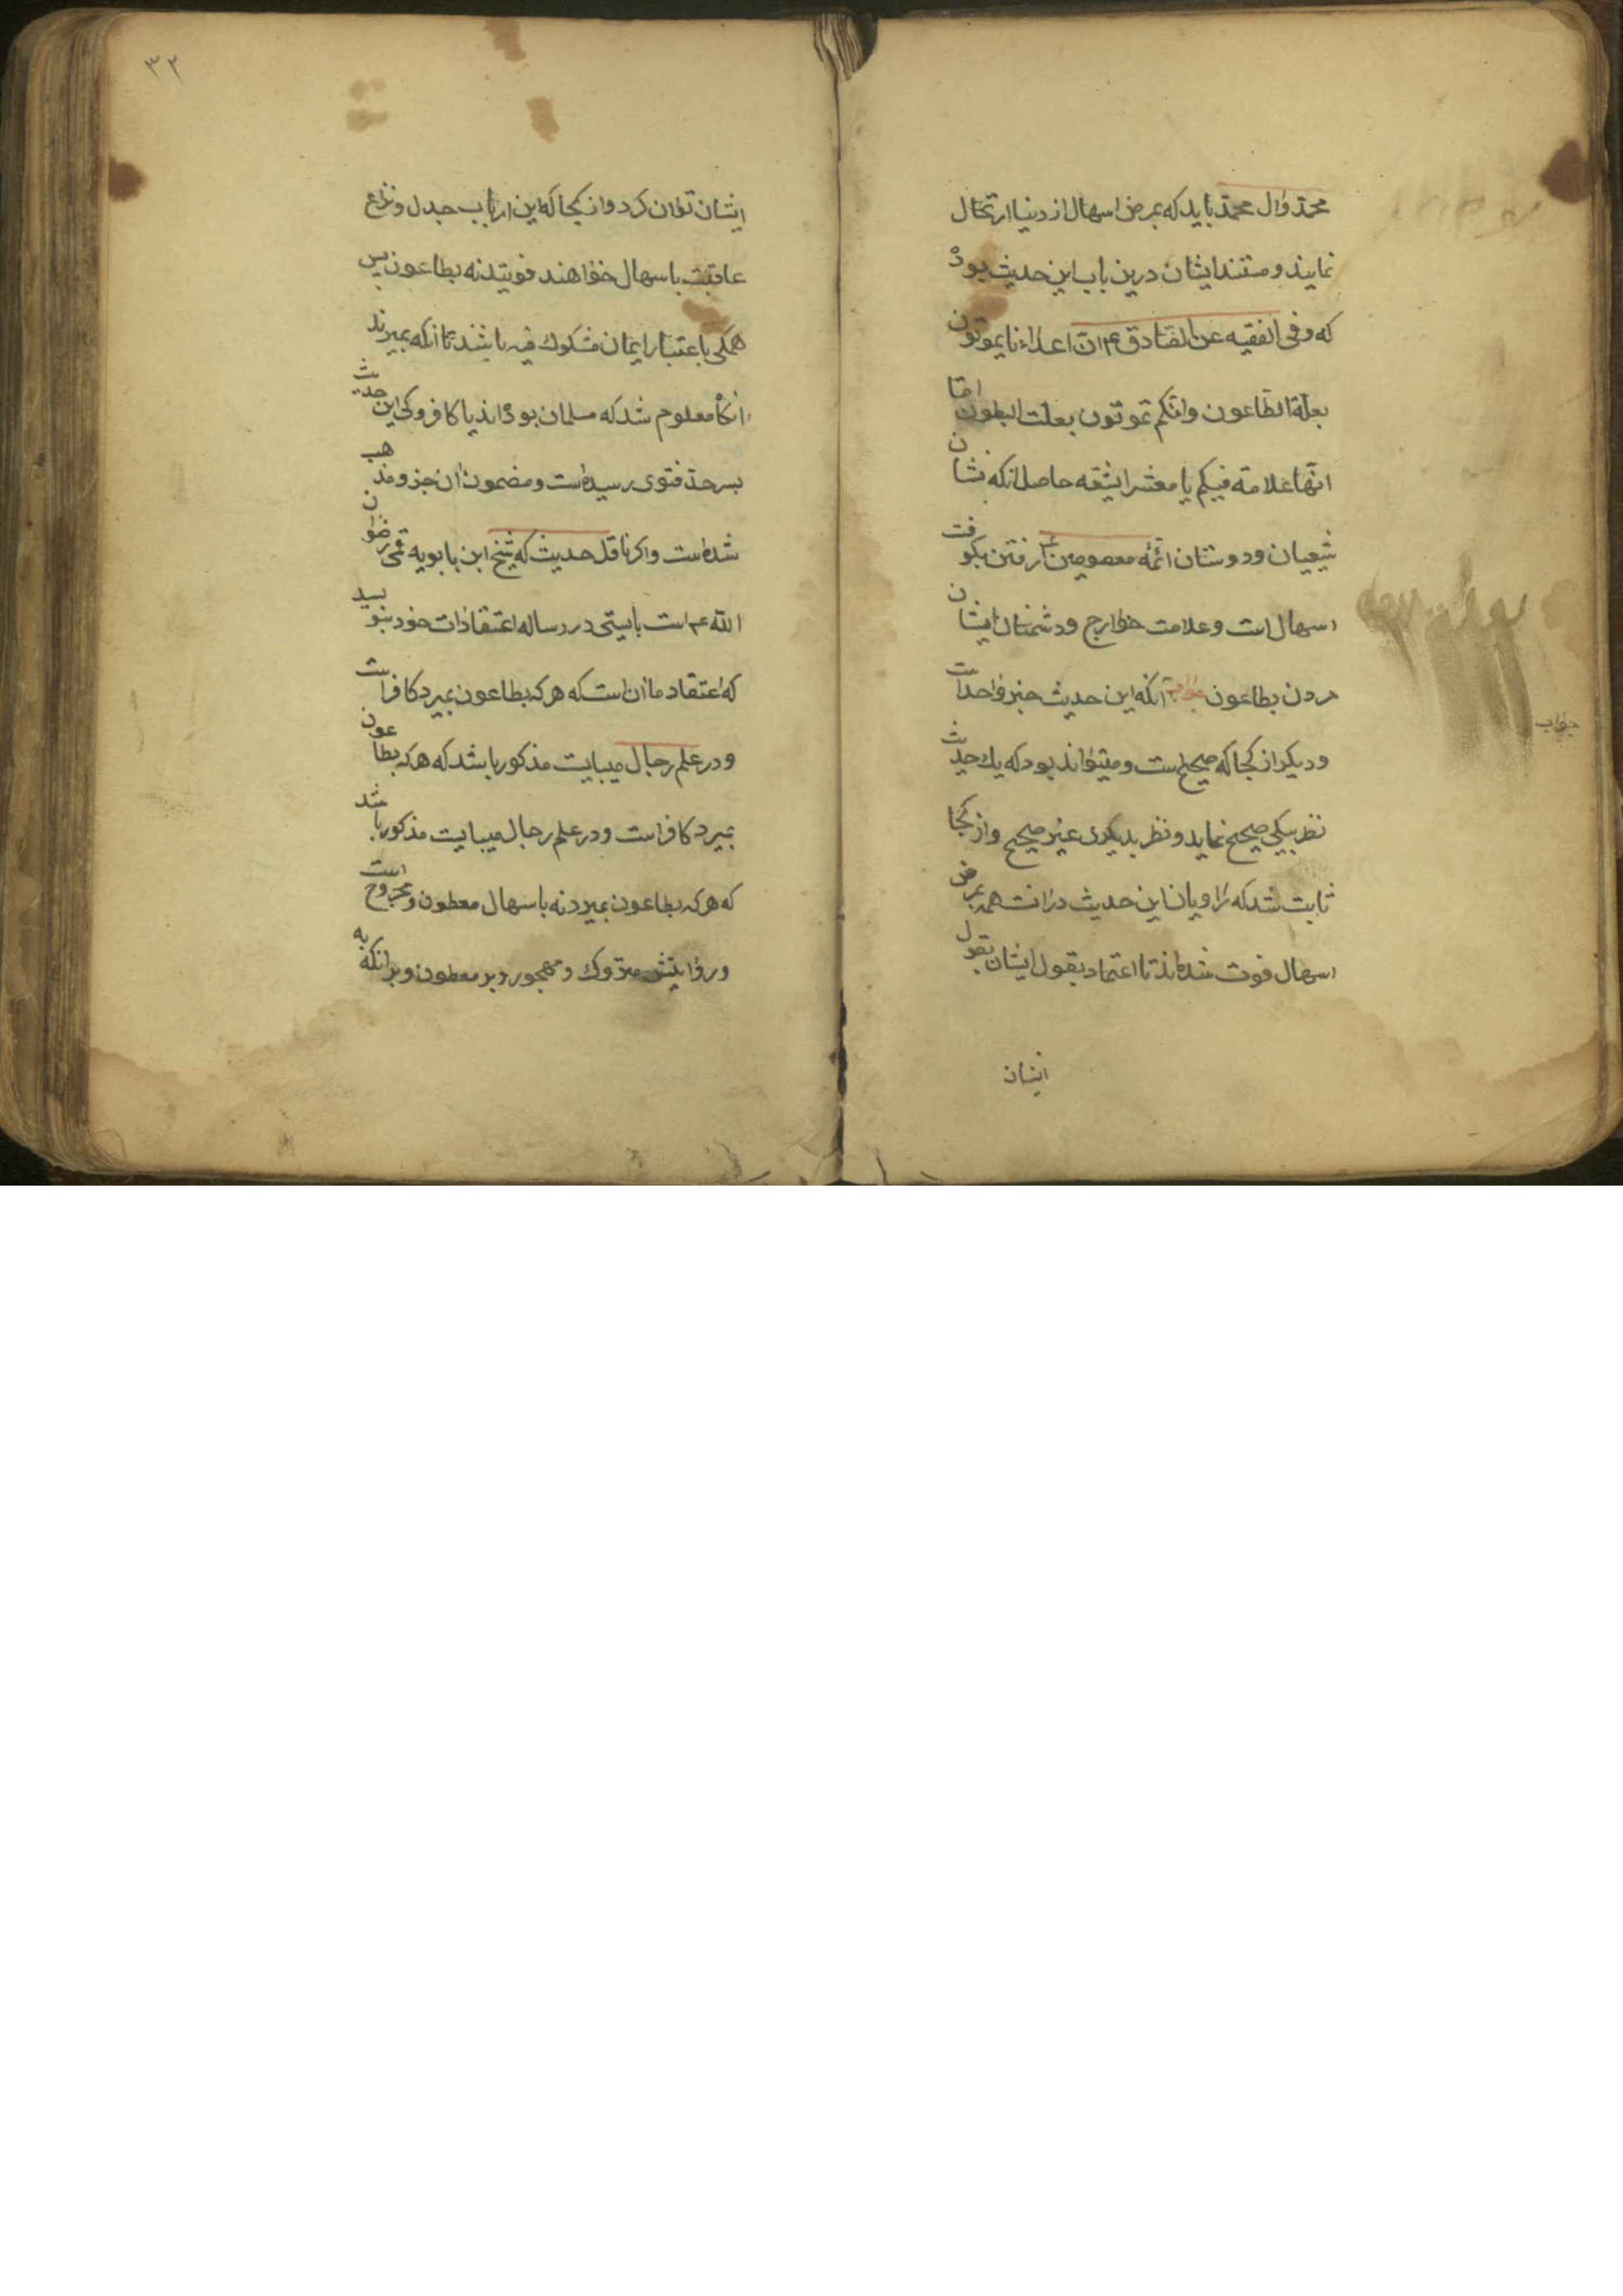 محمد وال محمد باید که بمرض اسهال از دنیا ارتحال
نمایند و مستند ایشان درین باب این حدیث بوده
که و فی الفقیه عن الصادق ع م ان اعداءنا یموتون
بعلة الطاعون و انکم تموتون بعلت البطون اما
انها علامة فیکم یا معشر الشیعه حاصل انکه نشان
شیعیان و دوستان ائمه معصومین ع م رفتن بکوفت
اسهال است و علامت خوارج و دشمنان ایشان
مردن بطاعون جواب آنکه این حدیث خبر واحد است
و دیکر از کجا که صحیح است و میتواند بود که یک حدیث
نظر بیکی صحیح نماید و نظر بدیکری غیر صحیح و از کجا
ثابت شد که راویان این حدیث درانت همه بمرض
اسهال فوت شده‌اند تا اعتماد بقول ایشان بقول
ایشان
جواب
۳۲
ایشان توان کرد و از کجا که این ارباب جدل و نزاع
عاقبت باسهال خواهند فوتید نه بطاعون پس
همکی باعتبار ایمان مشکوک فیه باشند تا انکه بمیرند
انکاه معلوم شد که مسلمان بوده‌اند یا کافر و کی این حدیث
بسرحد فتوی رسیده است و مضمون ان جزو مذهب
شده است و اکر ناقل حدیث که شیخ ابن بابویه قمی رضوان
الله ع م است بایستی در رساله اعتقادات خود بنویسید
که اعتقاد ما ان است که هر که بطاعون بمیرد کافر است
و در علم رجال میبایت مذکور باشد که هر که بطاعون
بمیرد کافر است و در علم رجال میبایت مذکور باشد
که هر که بطاعون بمیرد نه باسهال مطعون و مجروح است
و روایتش متروک و مهجور و بر مطعون و بر انکه به